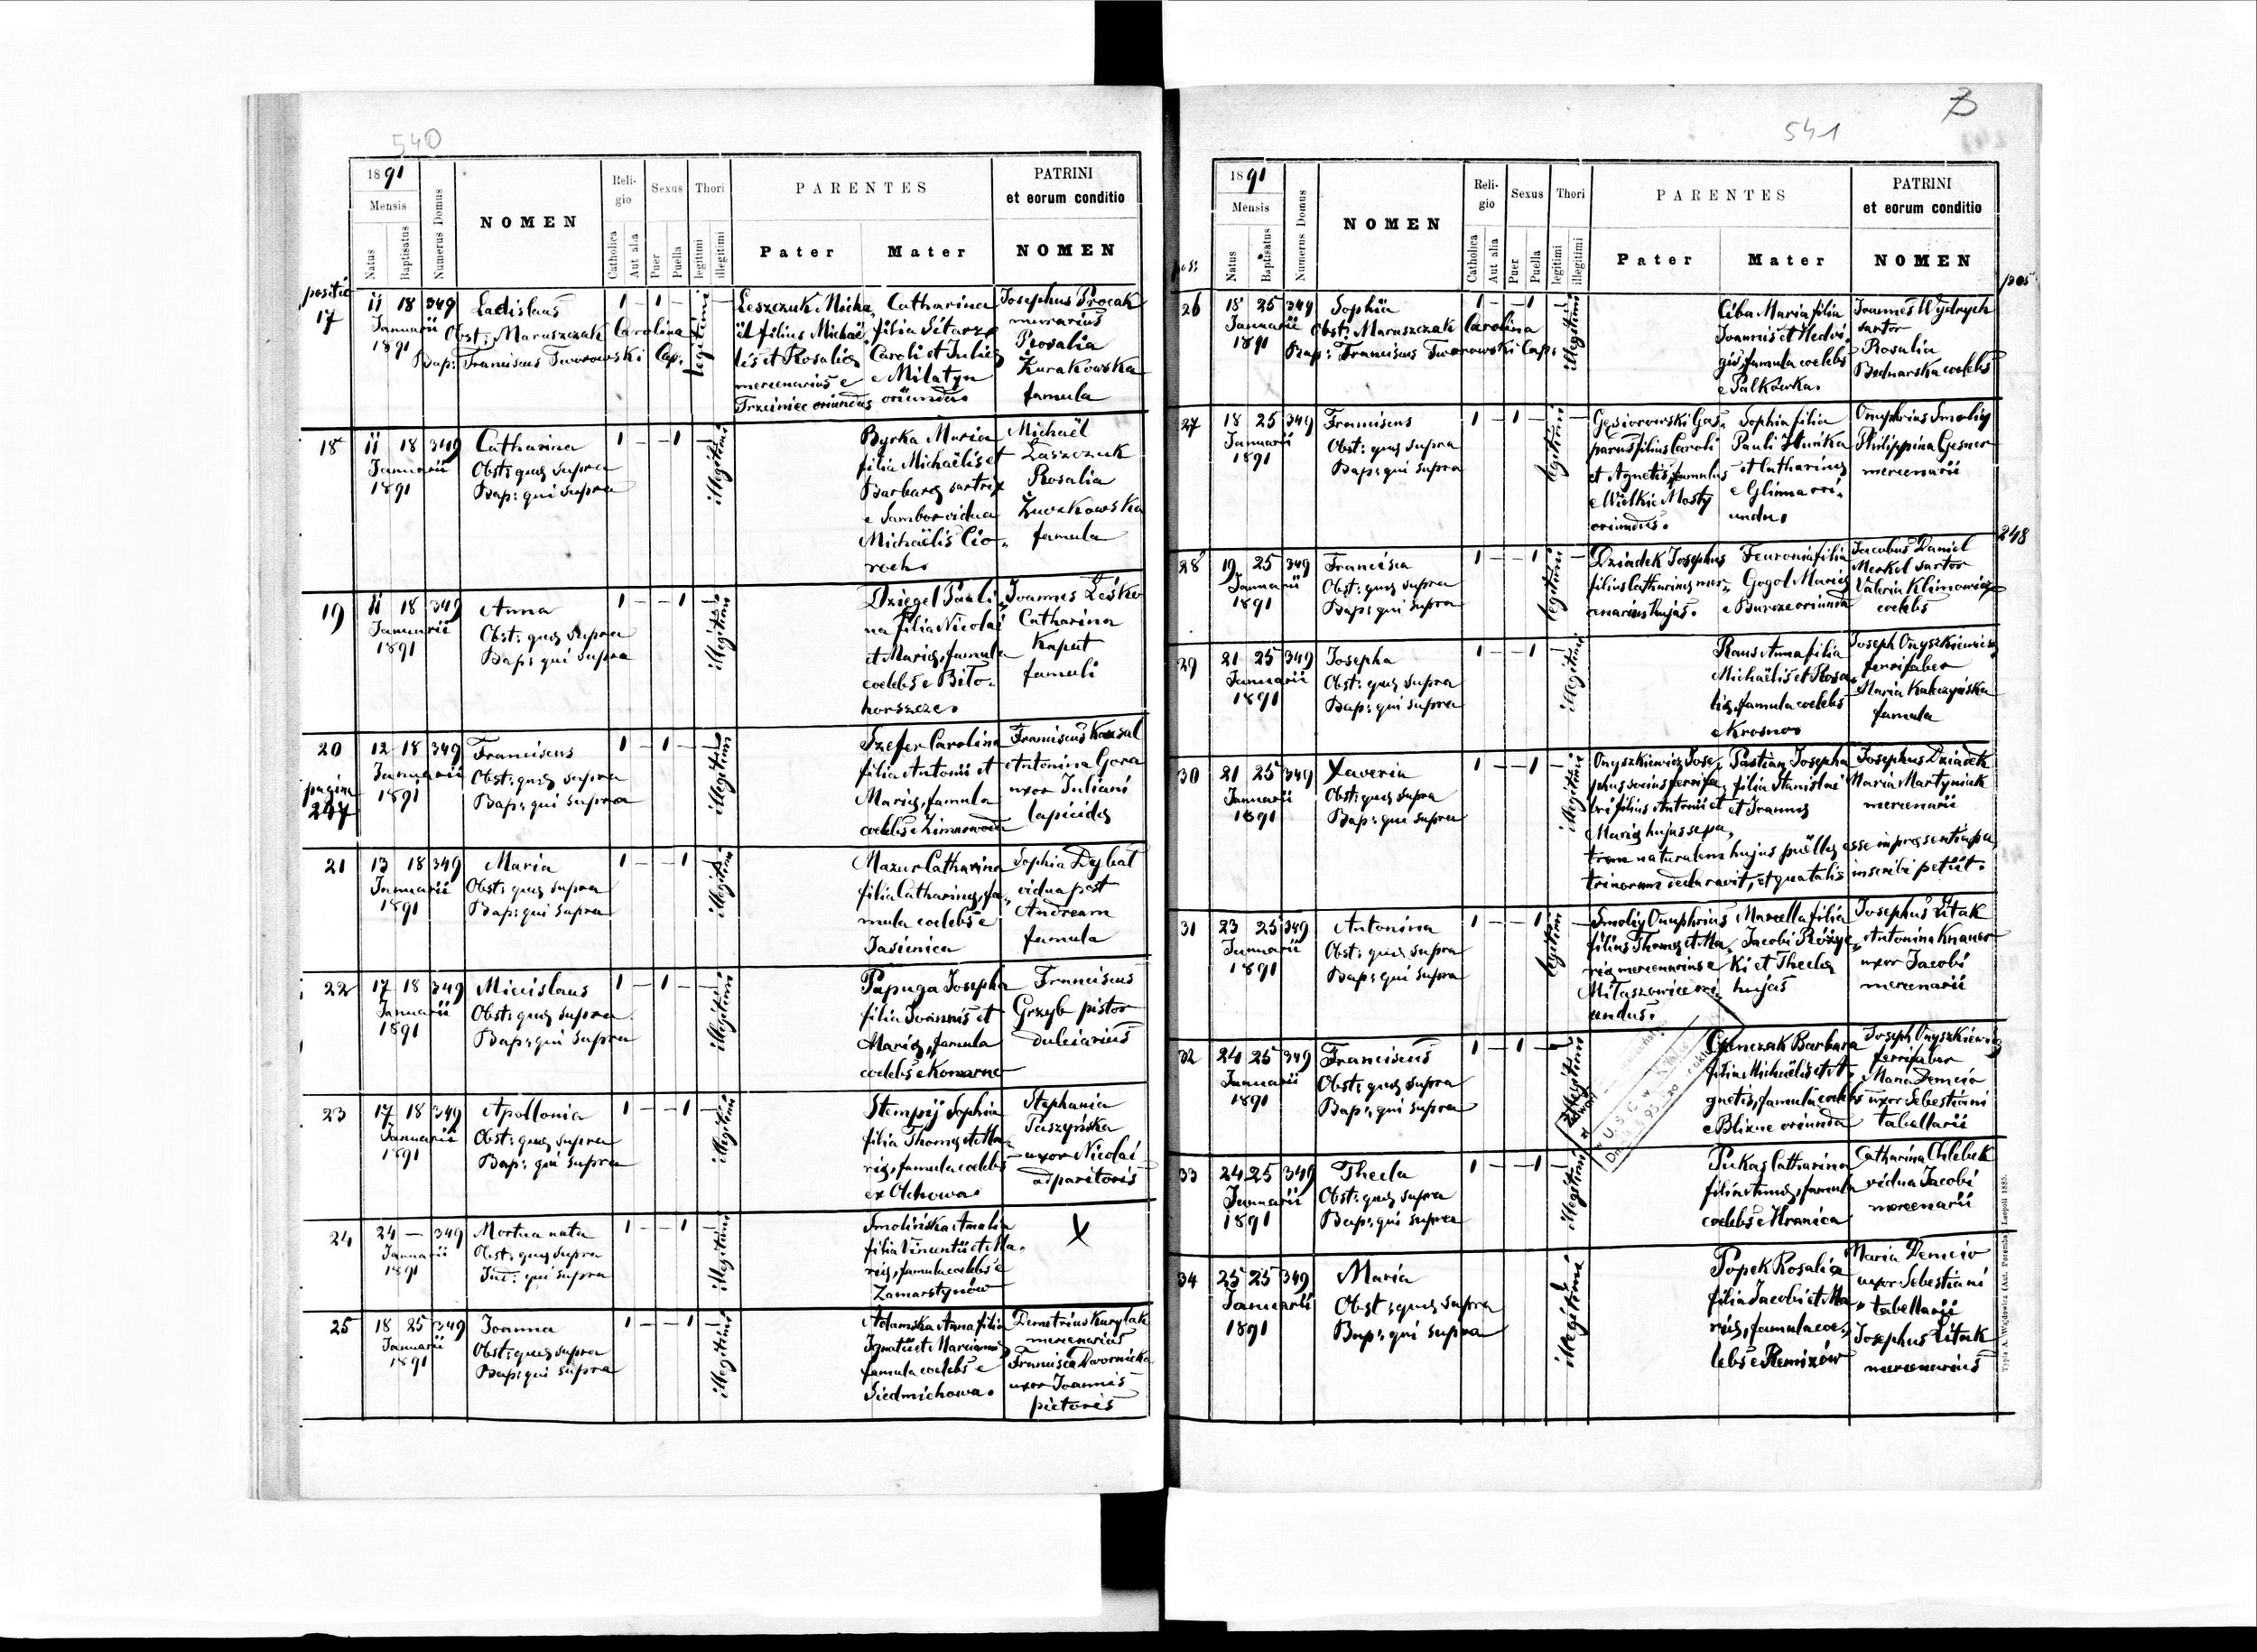 540
1891
Mensis
Natus
Baptisatus
Numerus Domus
NOMEN
Religio
Catholica
Aut alia
Sexus
Puer
Puella
Thori
legitimi
illegitimi
PARENTES
Pater
Mater
PATRINI
et eorum conditio
NOMEN
positio
17
11 18 349
Januarii
1891
Ladislaus
Obst: Maruszczak Carolina
Bap: Franciscus Tworowski Cap.
1 - 1 -
legitimi
Leszczuk Micha„
ël filius Michaë„
lis et Rosaliæ
mercenarius e
Trzciniec oriundus
Catharina
filia Sitarz
Caroli et Juliæ
e Milatyn
oriunda.
Josephus Procak
murarius
Rosalia
Żurakowska
famula
18
11 18 349
Januarii
1891
Catharina
Obst: quæ supra
Bap: qui supra
1 - - 1
illegitimi
Byrka Maria
filia Michaëlis et
Barbaræ sartrix
e Sambor vidua
Michaëlis Cio„
roch.
Michaël
Laszczuk
Rosalia
Żurakowska
famula
19
11 18 349
Januarii
1891
Anna
Obst: quæ supra
Bap: qui supra
1 - - 1
illegitimi
Dziegel Pauli„
na filia Nicolai
et Mariæ, famula
coelebs e Biło„
horszcze.
Joannes Leśko
Catharina
Kaput
famuli
20
pagina
247
12 18 349
Januarii
1891
Franciscus
Obst: quæ supra
Bap: qui supra
1 - 1 -
illegitimi
Szefer Carolina
filia Antonii et
Mariæ, famula
coelebs e Zimnowoda
Franciscus
Antonina Gora
uxor Juliani
lapicidæ
21
13 18 349
Januarii
1891
Maria
Obst: quæ supra
Bap: qui supra
1 - - 1
illegitimi
Mazur Catharina
filia Catharinæ, fa„
mula coelebs e
Jasienica
Sophia Dybat
vidua post
Andream
famula
22
17 18 349
Januarii
1891
Miecislaus
Obst: quæ supra
Bap: qui supra
1 - 1 -
illegitimi
Papuga Josepha
filia Joannis et
Mariæ, famula
coelebs e Komarno
Franciscus
Grzyb pistor
dulciarius
23
17 18 349
Januarii
1891
Apollonia
Obst: quæ supra
Bap: qui supra
1 - - 1
illegitimi
Stempij Sophia
filia Thomæ et Ma„
riæ, famula coelebs
ex Olchowa.
Stephania
Paszyńska
uxor Nicolai
adparitoris
24
24 — 349
Januarii
1891
Mortua nata
Obst: quæ supra
qui supra
1 - - 1
illegitimi
Smolińska Amalia
filia Vincentii et Ma„
riæ, famula coelebs e
Zamarstynów
X
25
18 25 349
Januarii
1891
Joanna
Obst: quæ supra
Bap: qui supra
1 - - 1
illegitimi
Adamska Anna filia
Ignatii et Mariannæ
famula coelebs e
Siedmichowa.
Demetrius Kurylak
mercenarius
Francisca Dwornicka
uxor Joannis
pictoris
541
1891
Mensis
Natus
Baptisatus
Numerus Domus
NOMEN
Religio
Catholica
Aut alia
Sexus
Puer
Puella
Thori
legitimi
illegitimi
PARENTES
Pater
Mater
PATRINI
et eorum conditio
NOMEN
pos
26
18 25 349
Januarii
1891
Sophia
Obst: Maruszczak Carolina
Bap: Franciscus Tworowski Cap.
1 - - 1
illegitimi
Ciba Maria filia
Joannis et Hedvi„
gis, famula coelebs
e Pałkówka.
Joannes Wydrych
sartor
Rosalia
Bednarska coelebs
27
18 25 349
Januarii
1891
Franciscus
Obst: quæ supra
Bap: qui supra
1 - 1 -
legitimi
Gęsiorowski Gas„
parus filius Caroli
et Agnetis, famulus
e Wielkie Mosty
oriundus.
Sophia filia
Pauli
et Catharinæ
e Glinna ori„
unda.
Onuphrius Smolij
Philippina Gesner
mercenarii
248
28
19 25 349
Januarii
1891
Francisca
Obst: quæ supra
Bap: qui supra
1 - - 1
legitimi
Dziadek Josephus
filius Catharinæ mer„
cenarius hujas.
Feuronia filia
Gogol Mariæ
e oriunda
Jacobus Daniel
Merkel sartor
Valeria Klimowicz
coelebs
29
21 25 349
Januarii
1891
Josepha
Obst: quæ supra
Bap: qui supra
1 - - 1
illegitimi
Raus Anna filia
Michaëlis et Rosa„
liæ, famula coelebs
e Krosno
Joseph Onyszkiewicz
ferrifaber
Maria Kulczyńska
famula
30
21 25 349
Januarii
1891
Xaveria
Obst: quæ supra
Bap: qui supra
1 - - 1
illegitimi
Onyszkiewicz Jose„
phus socius ferrifa„
bri filius Antonii et
Mariæ hujas se pa„
trem naturalem hujus puellæ esse in præsentia pa
trinorum declaravit, et qua talis inscribi petiit.
Pastian Josepha
filia Stanislai
et Joannæ
Josephus Dziadek
Maria Martyniak
mercenarii
31
23 25 349
Januarii
1891
Antonina
Obst: quæ supra
Bap: qui supra
1 - - 1
legitimi
Smolij Onuphrius
filius Thomæ et Ma„
riæ mercenarius e
Miłaszowice ori„
undus.
Marcella filia
Jacobi Różyc„
ki et Theclæ
hujas
Josephus Litak
Antonina Knauer
uxor Jacobi
mercenarii
32
24 25 349
Januarii
1891
Franciscus
Obst: quæ supra
Bap: qui supra
1 - 1 -
illegitimi
Barbara
filia Michaëlis et A„
gnetis, famula coelebs
e Blizne oriunda
Joseph Onyszkiewicz
ferrifaber
Maria Demcio
uxor Sebestiani
tabellarii
U.S.C. w
33
24 25 349
Januarii
1891
Thecla
Obst: quæ supra
Bap: qui supra
1 - - 1
illegitimi
Pukas Catharina
filia Annæ, famula
coelebs e Hranica
Catharina Chlebek
vidua Jacobi
mercenarii
34
25 25 349
Januarii
1891
Maria
Obst: quæ supra
Bap: qui supra
1 - - 1
illegitimi
Popek Rosalia
filia Jacobi et Ma
riæ, famula coe„
lebs e Remizów
Maria Demcio
uxor Sebestiani
tabellarii
Josephus Litak
mercenarius